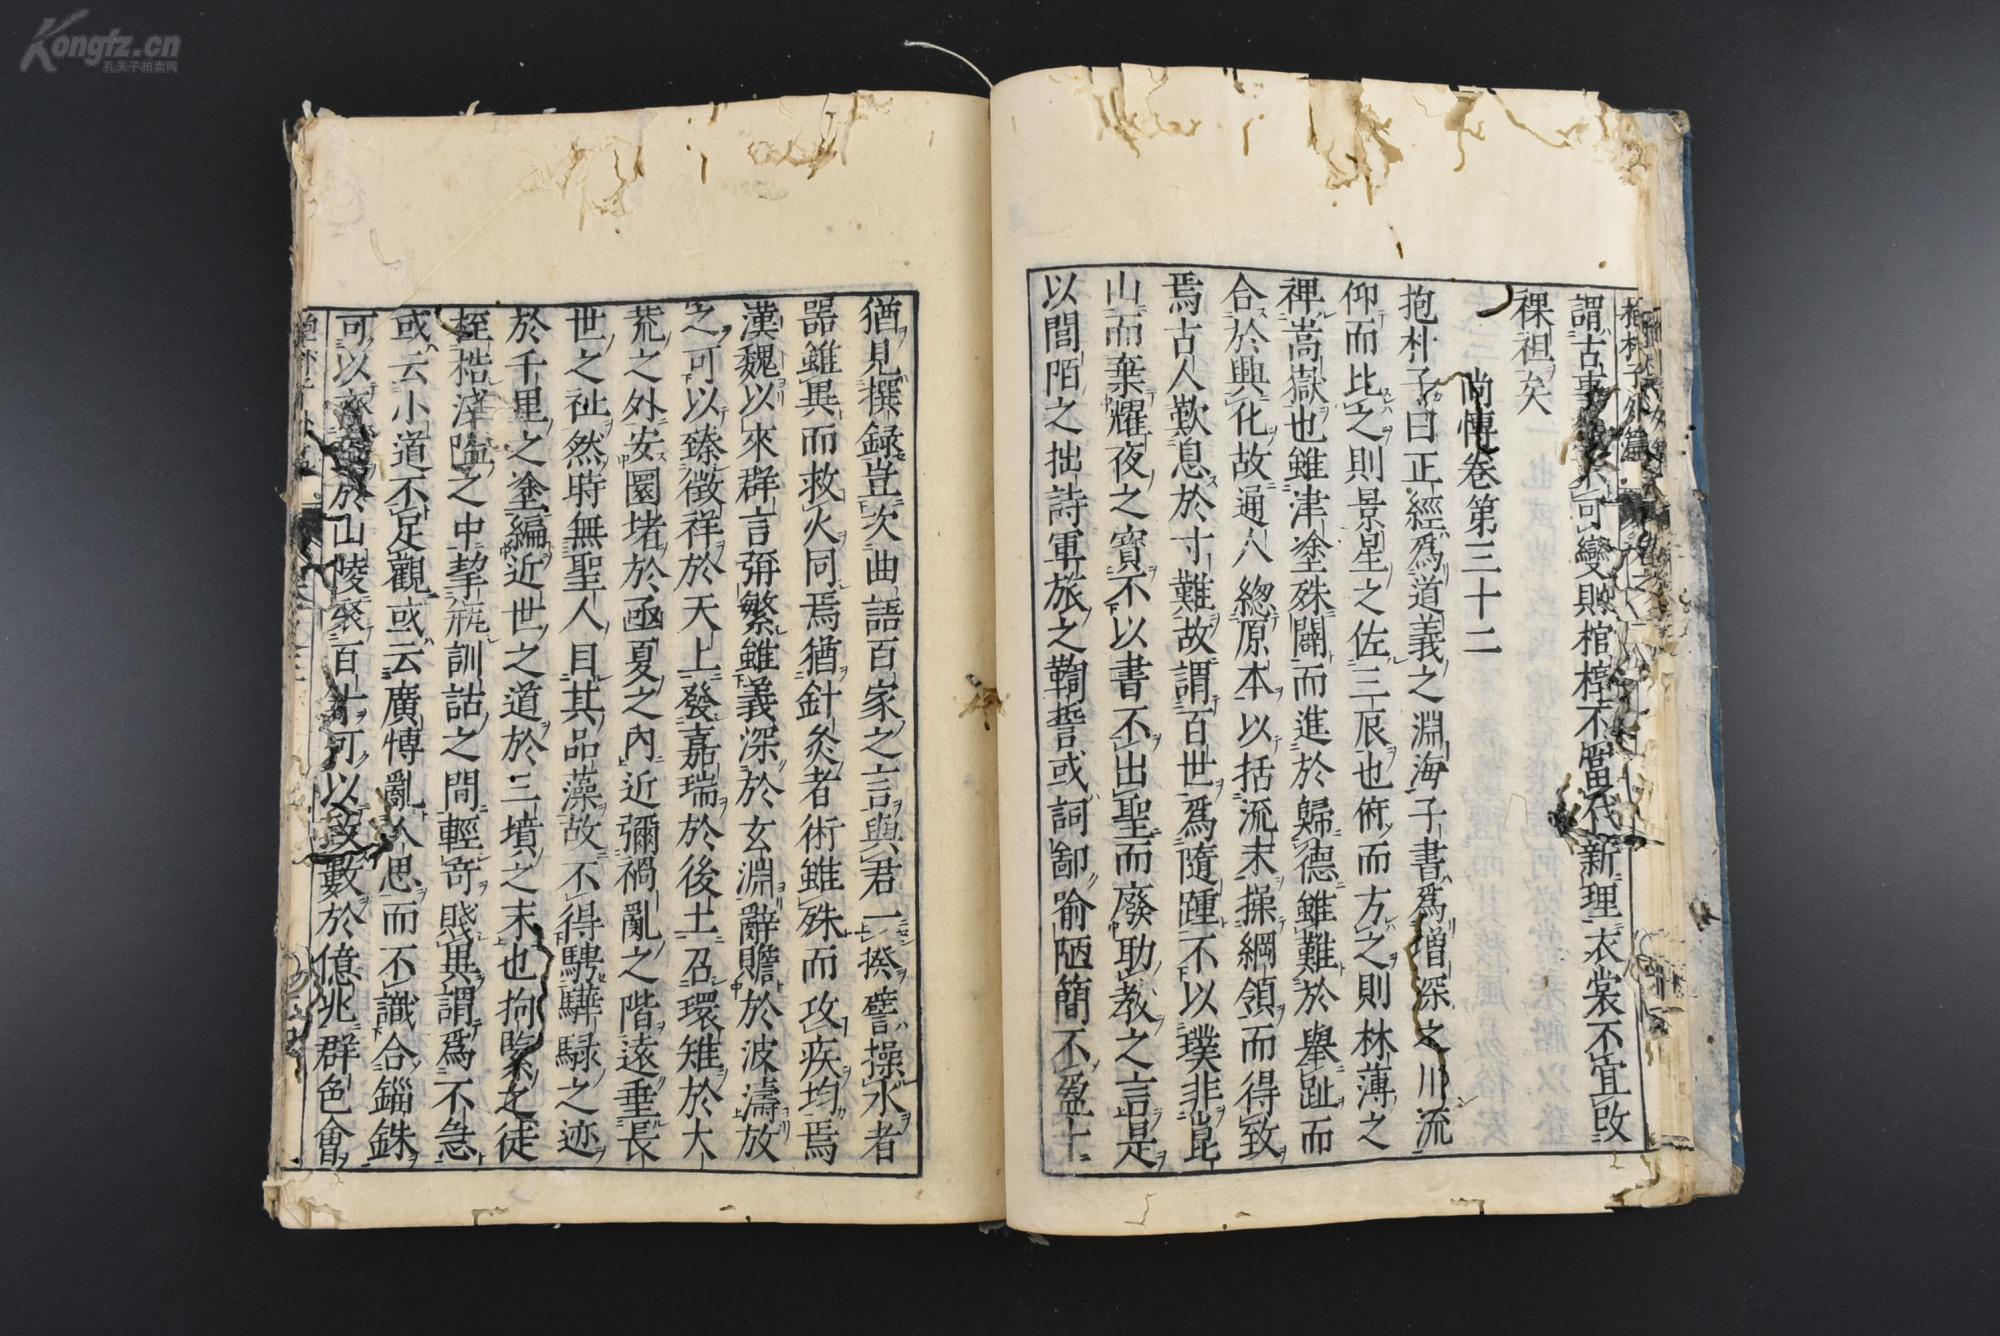 Kongfz.cn
孔夫子拍卖网
謂古事 可變則棺椁不當代新理衣裳不宜改
裸袒矣
尚博卷第三十二
抱朴子曰正經爲道義之淵海子書爲增深之川流
仰而比之則景星之佐三辰也俯而方之則林薄之
裨嵩嶽也雖津塗殊闢而進於歸德雖難於舉趾而
合於興化故通人總原本以括流末操綱領而得致
焉古人歎息於寸難故謂百世爲隨踵不以璞非崑
山而棄耀夜之寶不以書不出聖而廢助教之言是
以閭陌之拙詩軍旅之鞫誓或詞鄙喻陋簡不盈十
猶見撰録豈次曲語百家之言與君一揆譬操水者
器雖異而救火同焉猶針灸者術雖殊而攻疾均焉
漢魏以來群言彌繁雖義深於玄淵辭贍於波濤放
之可以臻徴祥於天上發嘉瑞於後土召環雉於大
荒之外安圜堵於函夏之內近彌禍亂之階遠垂長
世之祉然時無聖人目其品藻故不得騁驊騄之迹
於千里之塗編近世之道於三墳之末也拘繫之徒
桎梏淺隘之中挈瓶訓詁之間輕奇賤異謂爲不急
或云小道不足觀或云廣博亂人思而不識合錙銖
可以齊 於山陵衮百十可以致數於億兆群色會